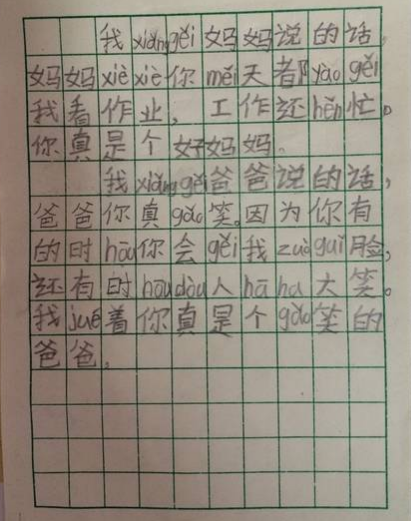 我xiǎnggěi妈妈说的话,
妈妈xièxiè你měi天都yào gěi
我看作业,工作还hěn忙。
你真是个好妈妈。
我xiǎnggěi爸爸说的话,
爸爸你真gǎo笑。因为你有
的时hou你会gěi我zuò guǐ脸,
还有时hou dòu人hā ha大笑。
我jué着你真是个gǎo笑的
爸爸。